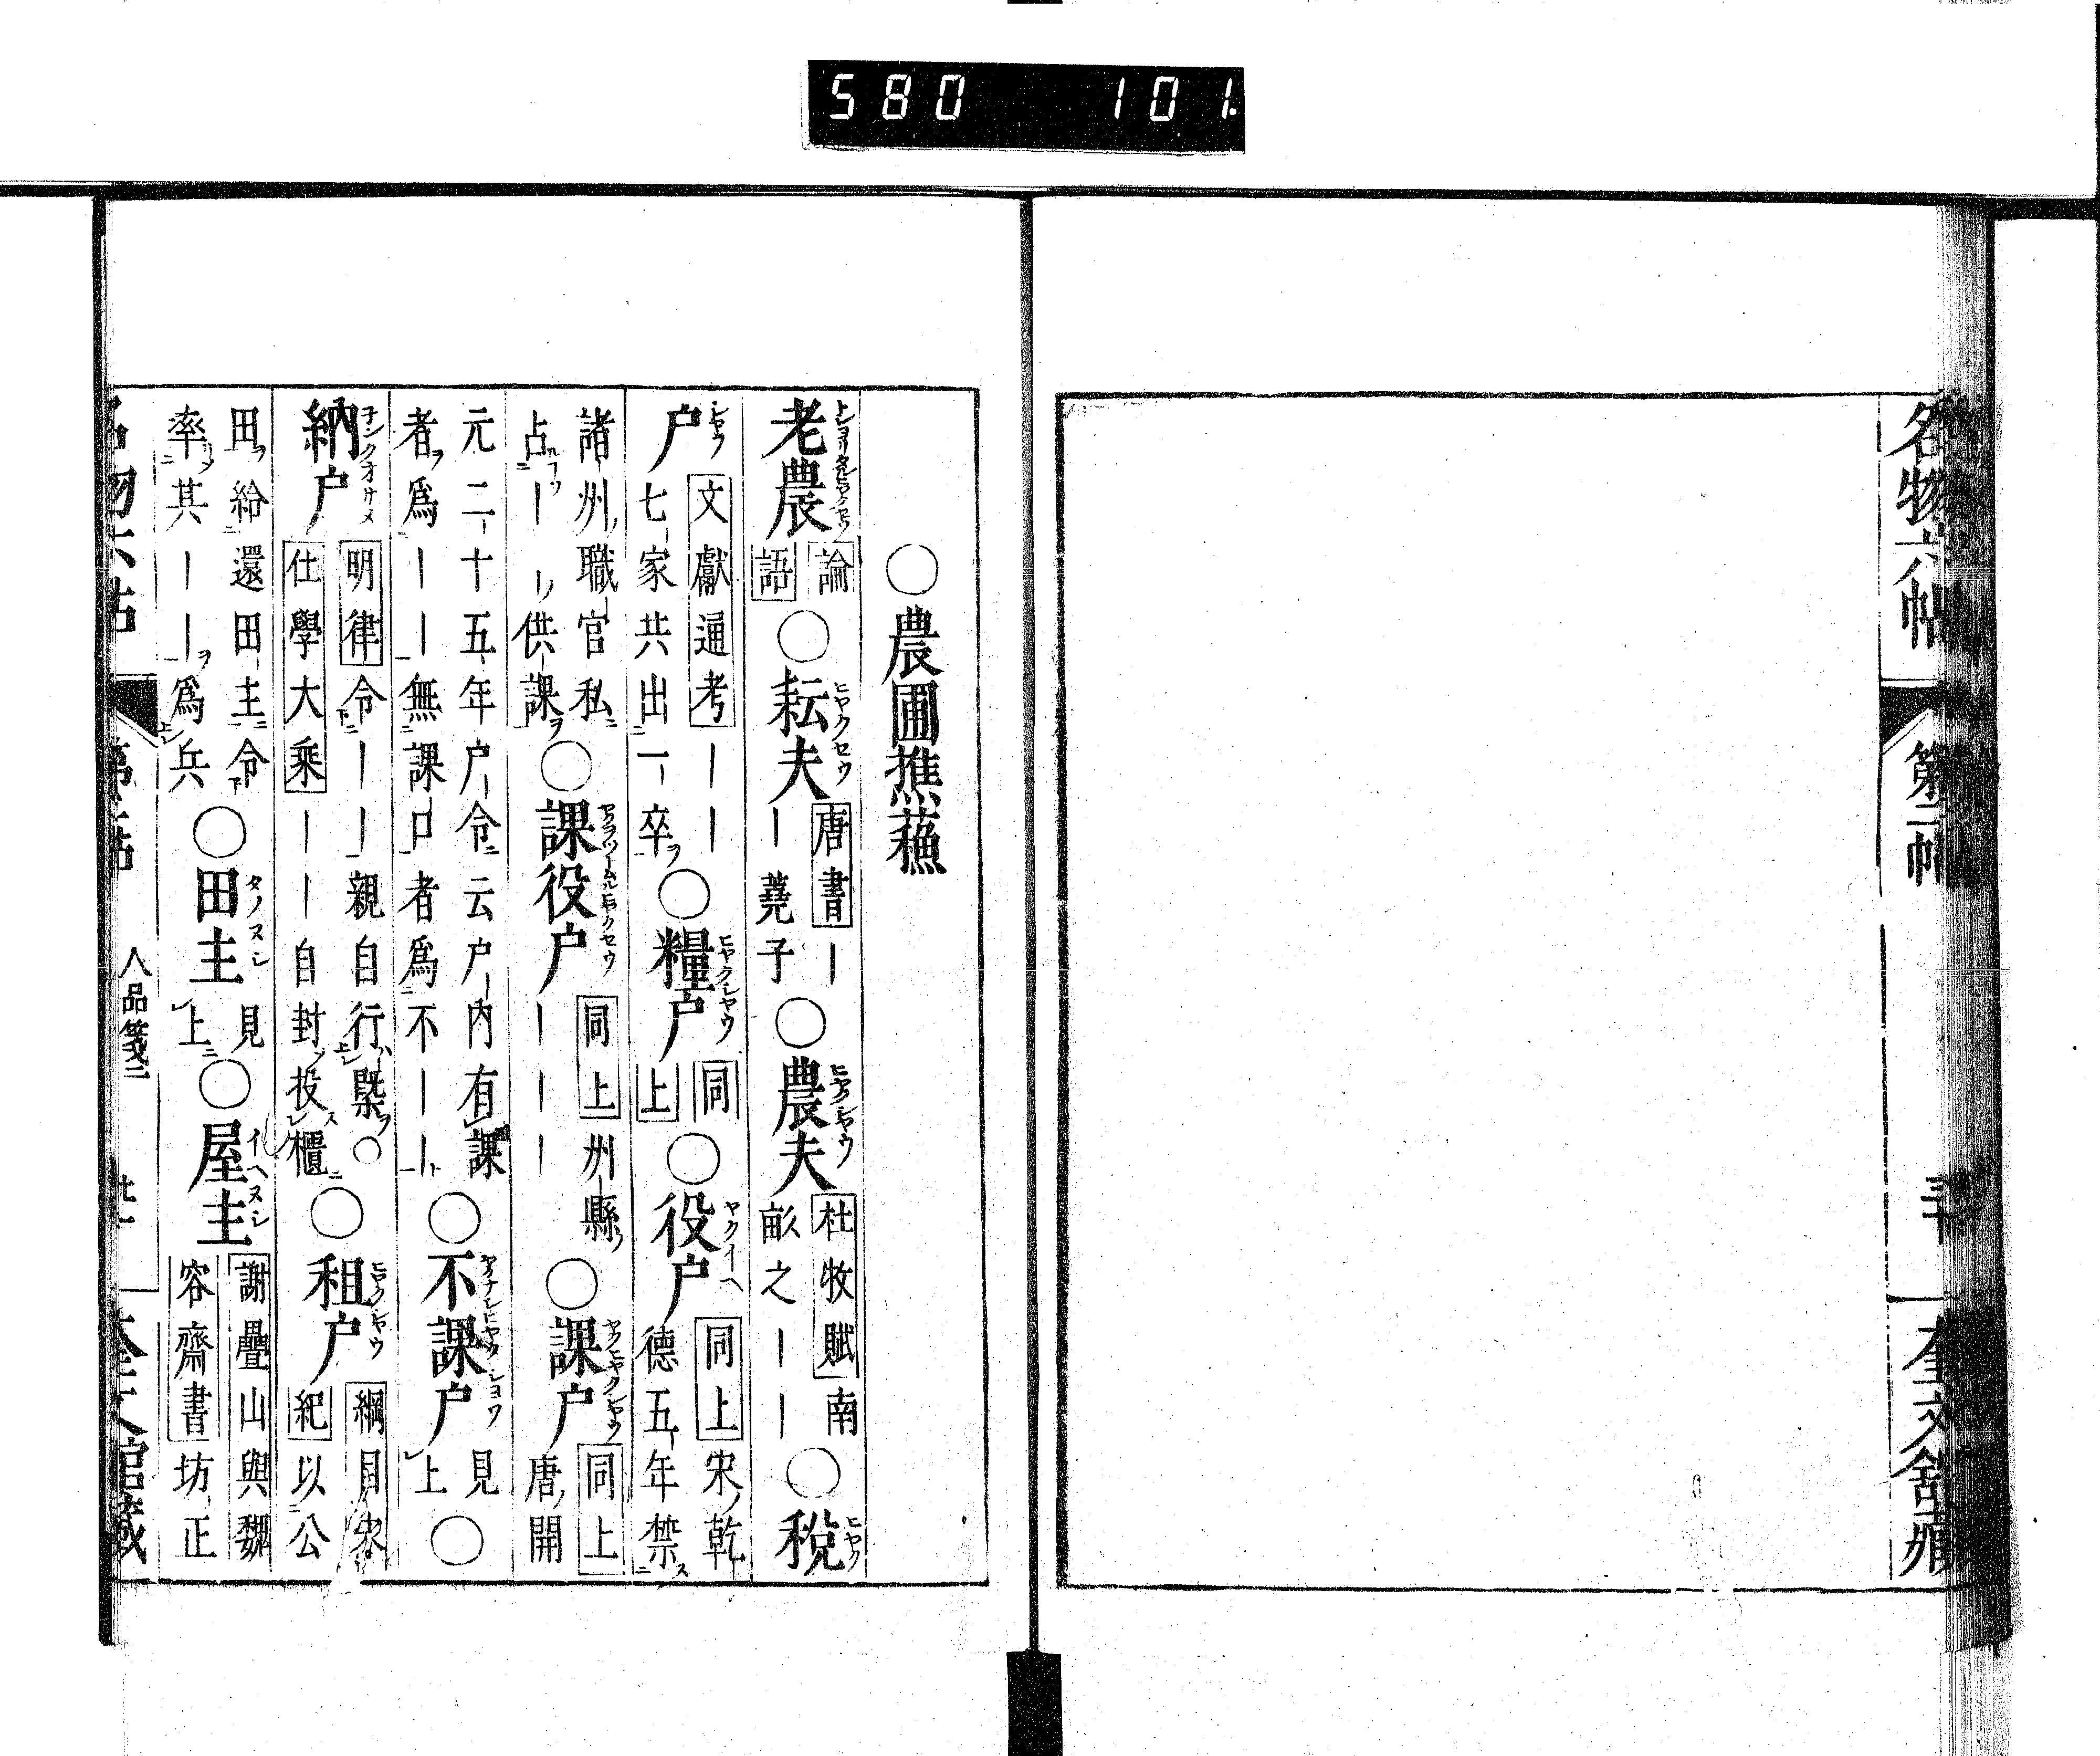 580 101.
名物六帖 第二帖 奎文舘藏
○農圃樵蘓
老農 論語 ○耘夫 唐書 ｜｜蕘子 ○農夫 杜牧賦 南畝之｜｜ ○税
戸 文獻通考 ｜｜七家共出一卒 ○糧戸 同上 ○役戸 同上 宋乾德五年禁
諸州職官私占｜｜供課 ○課役戸 同上 州縣｜｜｜ ○課戸 同上 唐開
元二十五年戸令云戸内有課者爲｜｜無課口者爲不｜｜ ○不課戸 見上 ○
納戸 明律 令｜｜親自行槩○ 仕學大乘 ｜｜自封投櫃 ○租戸 綱目宋紀 以公
田給還田主令率其｜｜爲兵 ○田主 見上 ○屋主 謝疊山與魏容齋書 坊正
名物六帖 第二帖 人品箋二 奎文舘藏